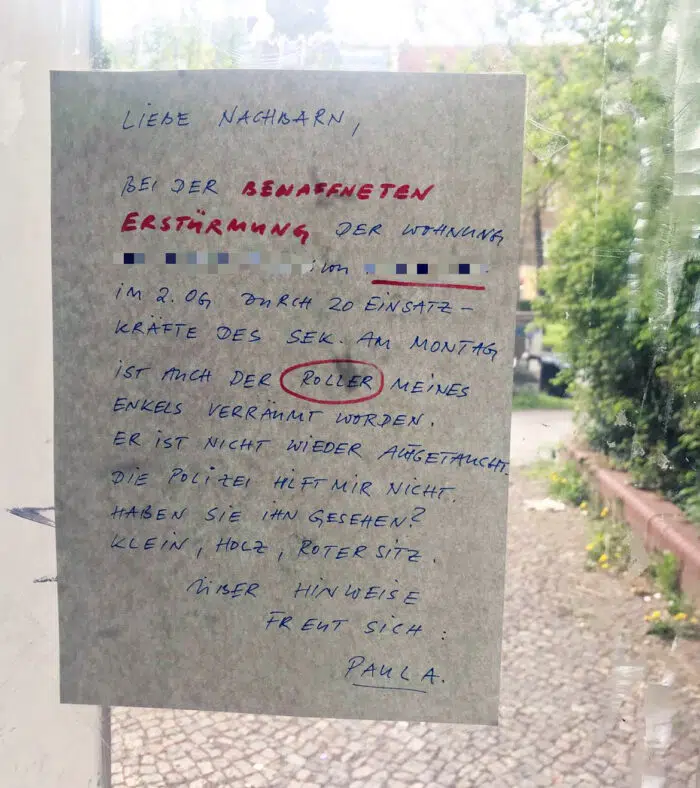 LIEBE NACHBARN,
BEI DER BEWAFFNETEN
ERSTÜRMUNG DER WOHNUNG
von
IM 2. OG DURCH 20 EINSATZ-
KRÄFTE DES SEK. AM MONTAG
IST AUCH DER ROLLER MEINES
ENKELS VERRÄUMT WORDEN.
ER IST NICHT WIEDER AUFGETAUCHT.
DIE POLIZEI HILFT MIR NICHT.
HABEN SIE IHN GESEHEN?
KLEIN, HOLZ, ROTER SITZ.
ÜBER HINWEISE
FREUT SICH:
PAUL A.